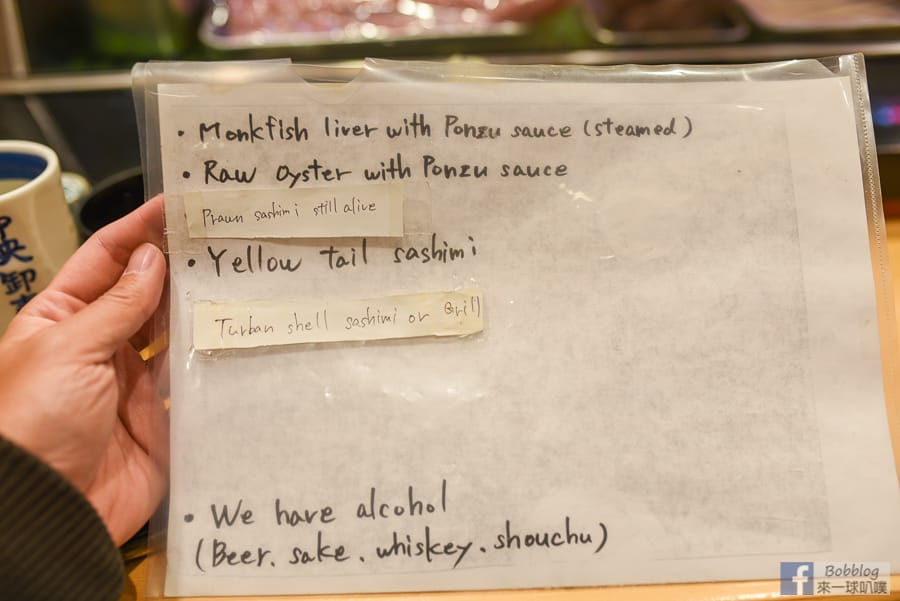 • Monkfish liver with Ponzu sauce (steamed)
• Raw oyster with Ponzu sauce
Prawn sashimi still alive
• Yellow tail sashimi
Turban shell sashimi or Grill
• We have alcohol
(Beer. sake. whiskey. shouchu)
央卸
Bobblog
來一球叭噗